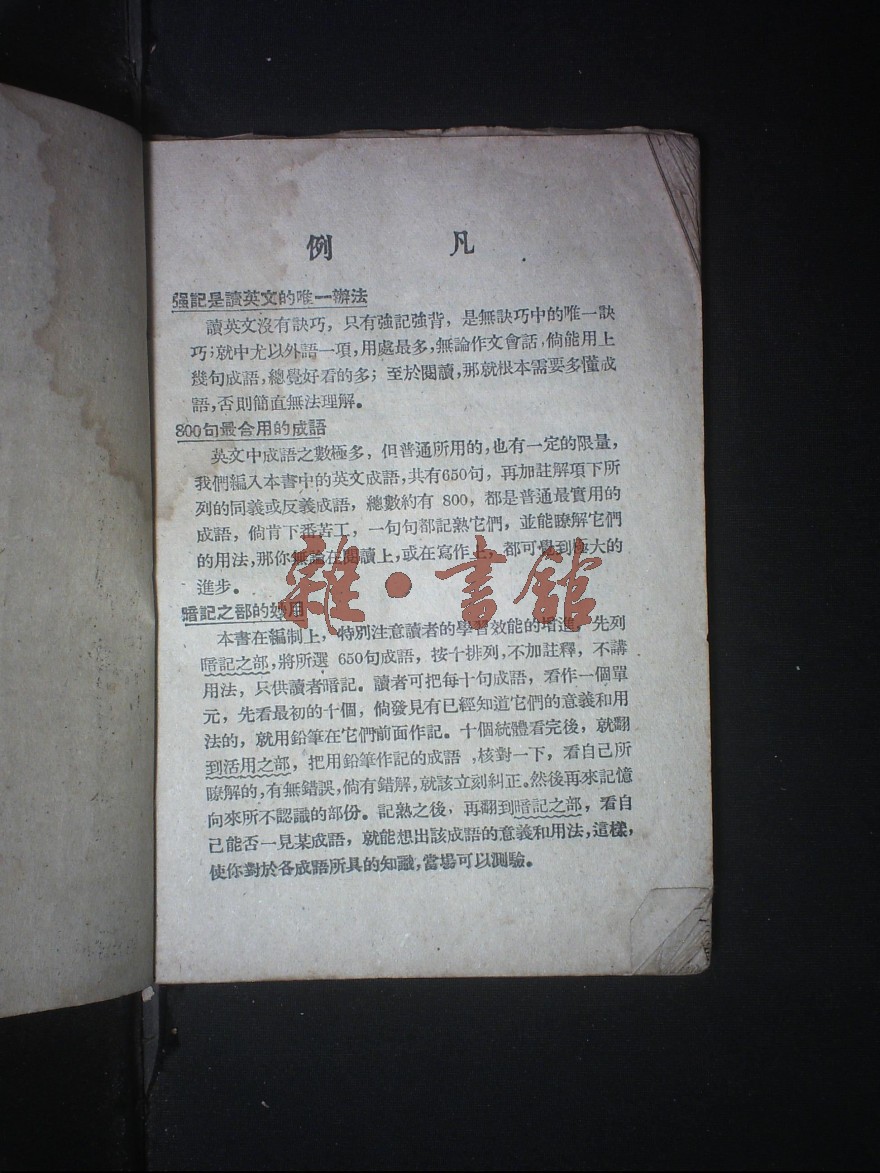 例 凡
强記是讀英文的唯一辦法
讀英文沒有訣巧，只有強記強背，是無訣巧中的唯一訣
巧；就中尤以外語一項，用處最多，無論作文會話，倘能用上
幾句成語，總覺好看的多；至於閱讀，那就根本需要多懂成
語，否則簡直無法理解。
800句最合用的成語
英文中成語之數極多，但普通所用的，也有一定的限量，
我們編入本書中的英文成語，共有650句，再加註解項下所
列的同義或反義成語，總數約有 800，都是普通最實用的
成語，倘肯下番苦工，一句句都記熟它們，並能瞭解它們
的用法，那你無論在閱讀上，或在寫作上，都可覺到極大的
進步。
雜·書舘
暗記之部的妙用
本書在編制上，特別注意讀者的學習效能的增進，先列
暗記之部，將所選 650句成語，按十排列，不加註釋，不講
用法，只供讀者暗記。讀者可把每十句成語，看作一個單
元，先看最初的十個，倘發見有已經知道它們的意義和用
法的，就用鉛筆在它們前面作記。十個統體看完後，就翻
到活用之部，把用鉛筆作記的成語，核對一下，看自己所
瞭解的，有無錯誤，倘有錯解，就該立刻糾正。然後再來記憶
向來所不認識的部份。記熟之後，再翻到暗記之部，看自
己能否一見某成語，就能想出該成語的意義和用法，這樣，
使你對於各成語所具的知識，當場可以測驗。